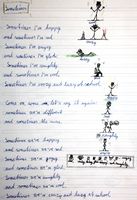 Sometimes
Sometimes I'm happy
and sometimes I'm sad.
Sometimes I'm angry
and sometimes I'm glad.
Sometimes I'm naughty
and sometimes I'm
Sometimes I'm crazy and lazy at school.
Come on, come on, let's say it again:
sometimes we're different
and sometimes the same.
Sometimes we're happy
and sometimes we're sad.
Sometimes we're angry
and sometimes we're glad.
Sometimes we're naughty
and sometimes we're cool.
Sometimes we're crazy and lazy at school.